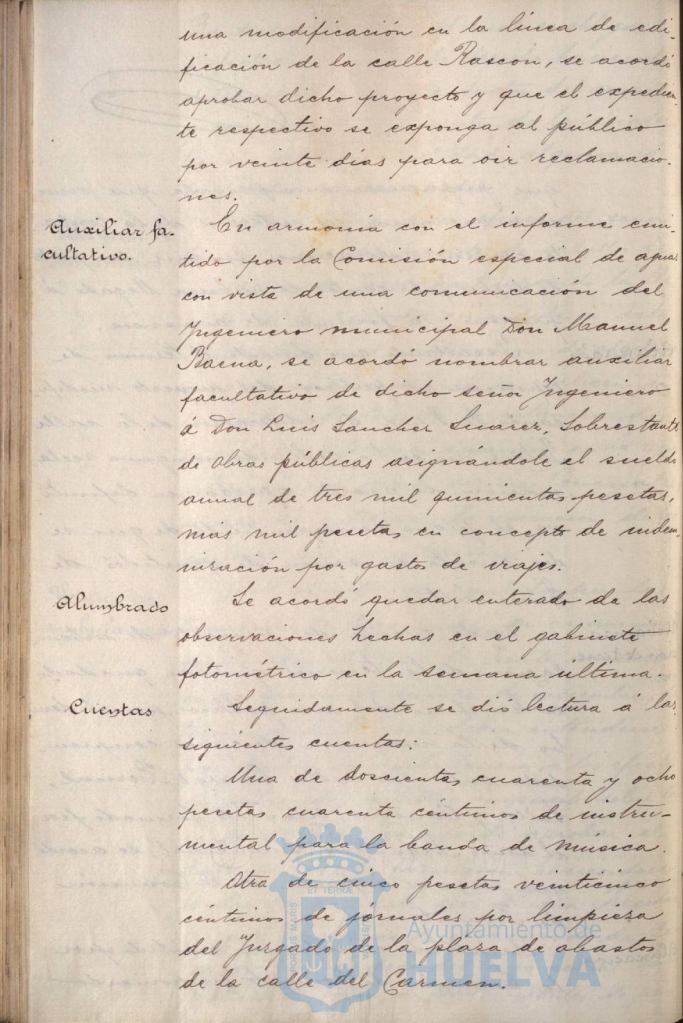 una modificación en la línea de edi-
ficación de la calle Rascon, se acordó
aprobar dicho proyecto y que el expedien-
te respectivo se exponga al público
por veinte días para oir reclamacio-
nes.
Auxiliar fa-
cultativo.
En armonía con el informe emi-
tido por la Comisión especial de aguas
con vista de una comunicación del
Ingeniero municipal Don Manuel
Baena, se acordó nombrar auxiliar
facultativo de dicho señor Ingeniero
á Don Luis Sanchez Suarez, Sobrestante
de obras públicas asignándole el sueldo
anual de tres mil quinientas pesetas,
más mil pesetas en concepto de indem-
nización por gastos de viajes.
Alumbrado
Se acordó quedar enterado de las
observaciones hechas en el gabinete
fotométrico en la semana última.
Cuentas
Seguidamente se dió lectura á las
siguientes cuentas:
Una de doscientas cuarenta y ocho
pesetas cuarenta céntimos de instru-
mental para la banda de música.
Otra de cinco pesetas veinticinco
céntimos de jornales por limpieza
del Juzgado de la plaza de abastos
de la calle del Carmen.
Ayuntamiento de
HUELVA